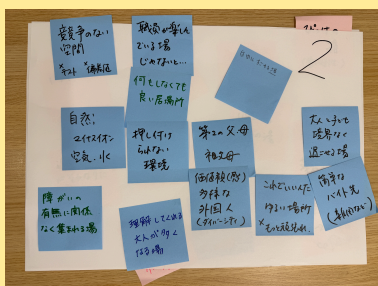 競争のない
空間
×テスト ×偏差値
職員が楽しん
でいる場
じゃないと…
2
何もしなくても
良い居場所
自然!
マイナスイオン
空気、水
押し付け
られない
環境
第2の父・母
祖父母
大人も子どもも
境界なく
過ごせる場
障がいの
有無に関係
なく集まれる場
理解してくれる
大人が多く
なる場
価値観(感)
多様な
外国人
(ダイバーシティ)
これでいいんだ
ゆるい場所
×もっと頑張れ。
簡単な
バイト先